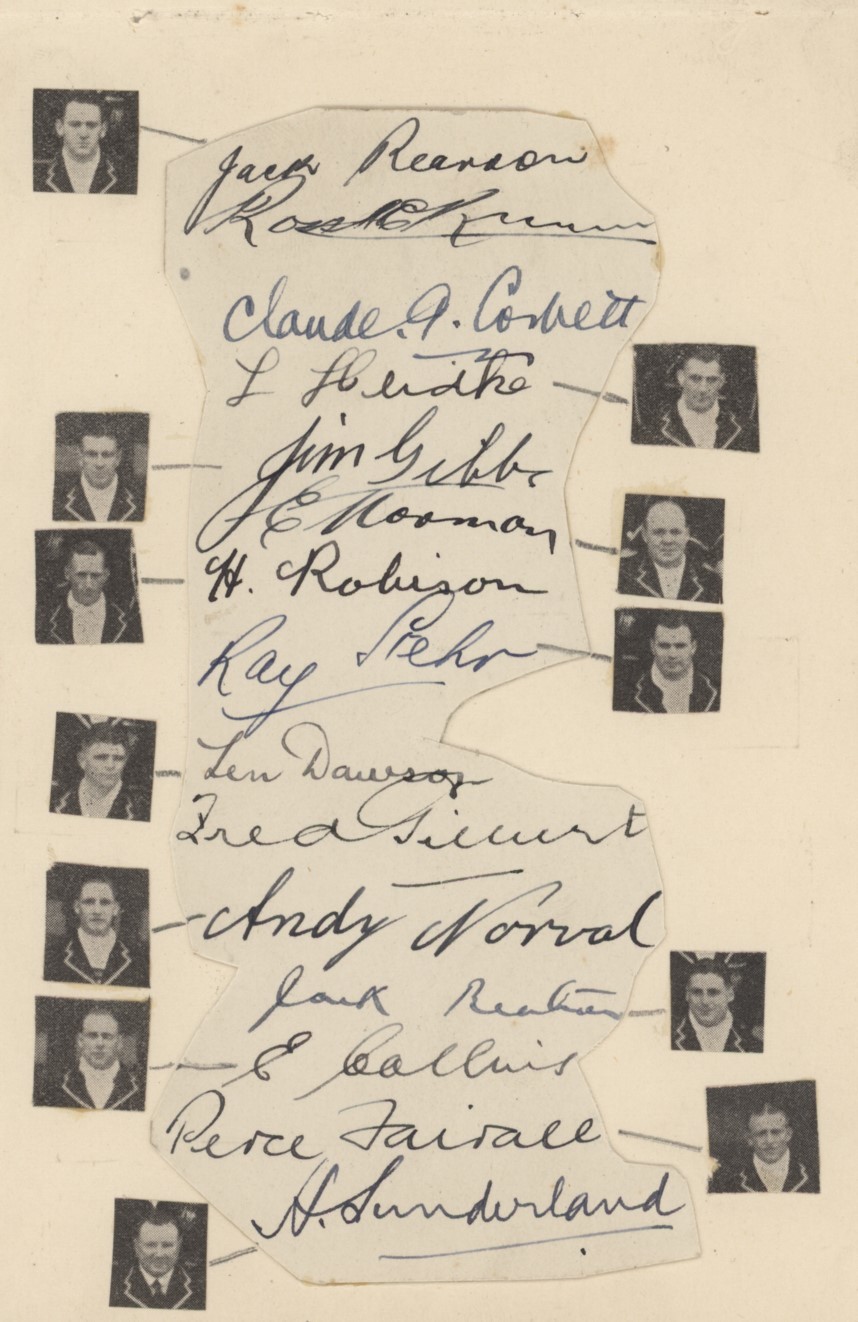 Jack Rearson
Ross McKinnon
Claude. A. Corbett
L Heidke
Jim Gibbs
E Norman
H. Robison
Ray Stehr
Len Dawson
Fred Gilbert
Andy Norval
Jack Beaton
E Collins
Perce Fairall
H. Sunderland